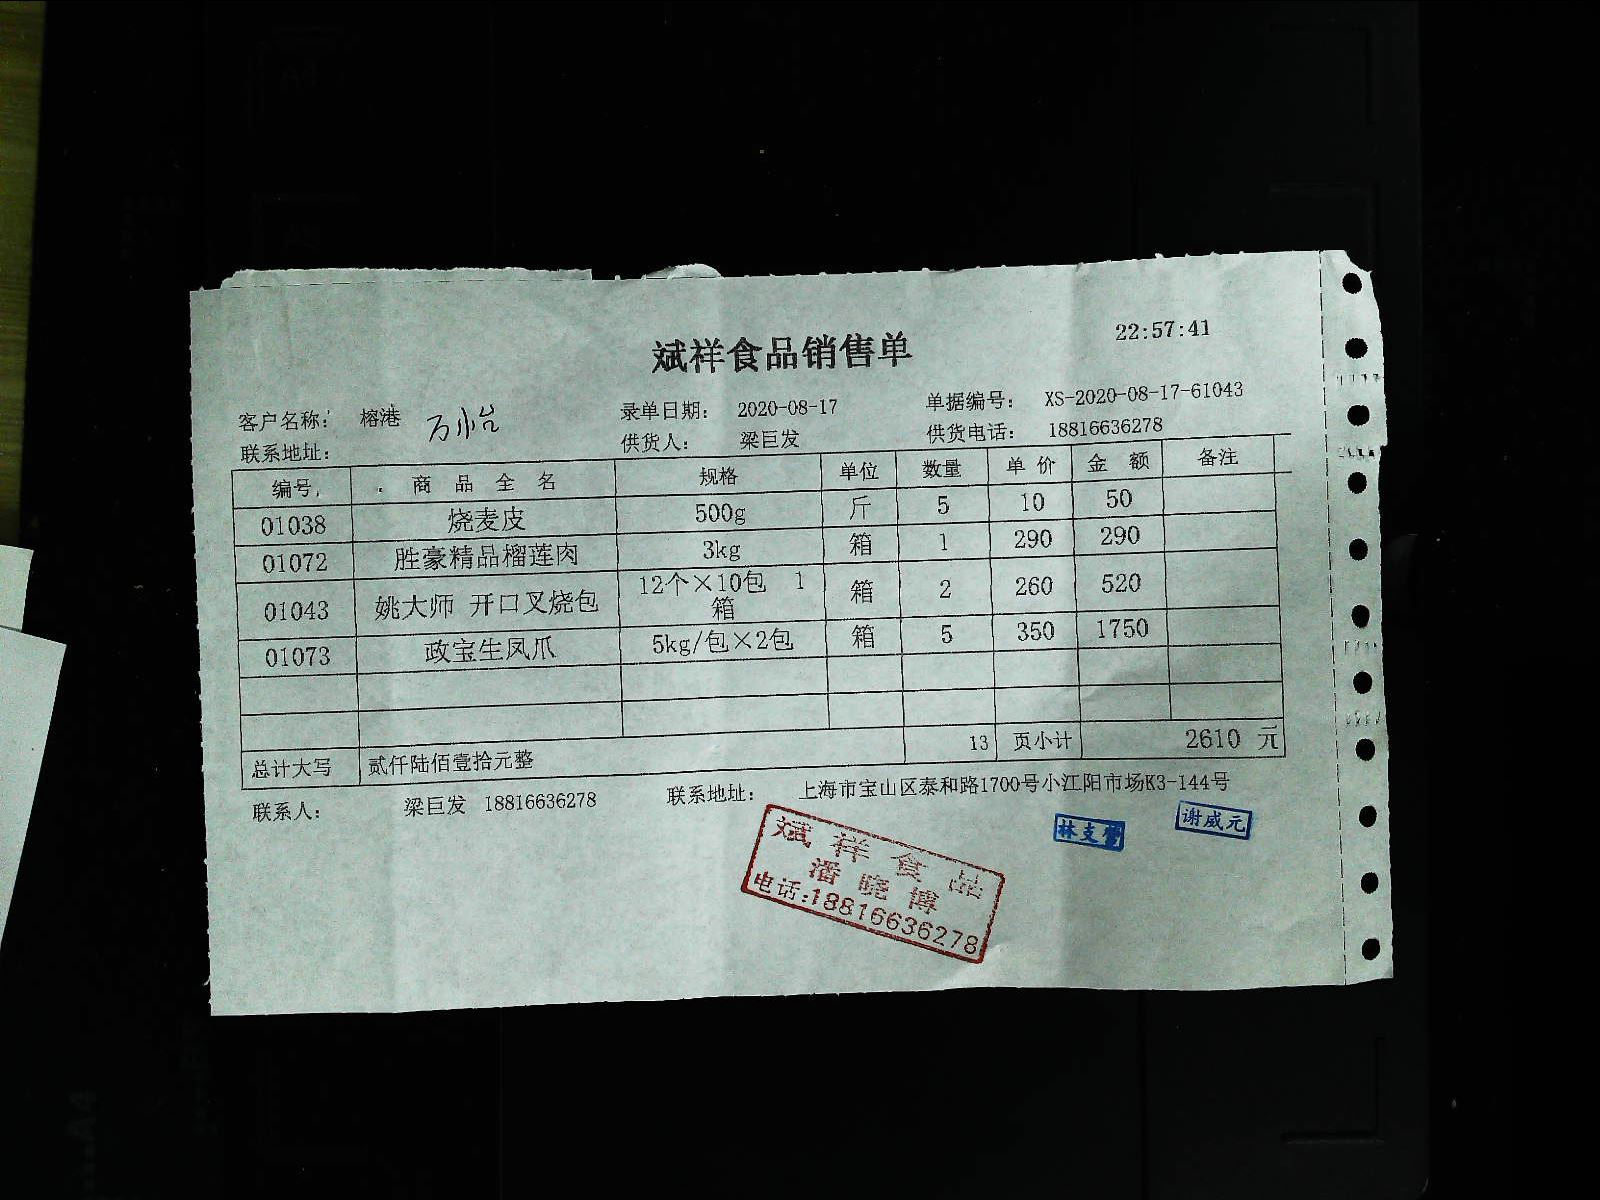 22:57:41
斌祥食品销售单
客户名称： 榕港 万小怡 录单日期： 2020-08-17 单据编号： XS-2020-08-17-61043
联系地址： 供货人： 梁巨发 供货电话： 18816636278
编号 商品全名 规格 单位 数量 单价 金额 备注
01038 烧麦皮 500g 斤 5 10 50
01072 胜豪精品榴莲肉 3kg 箱 1 290 290
01043 姚大师 开口叉烧包 12个×10包 1箱 箱 2 260 520
01073 政宝生凤爪 5kg/包×2包 箱 5 350 1750
总计大写 贰仟陆佰壹拾元整 13 页小计 2610 元
联系人： 梁巨发 18816636278 联系地址： 上海市宝山区泰和路1700号小江阳市场K3-144号
斌祥食品
潘晓博
电话:18816636278
林支
谢威元
A4